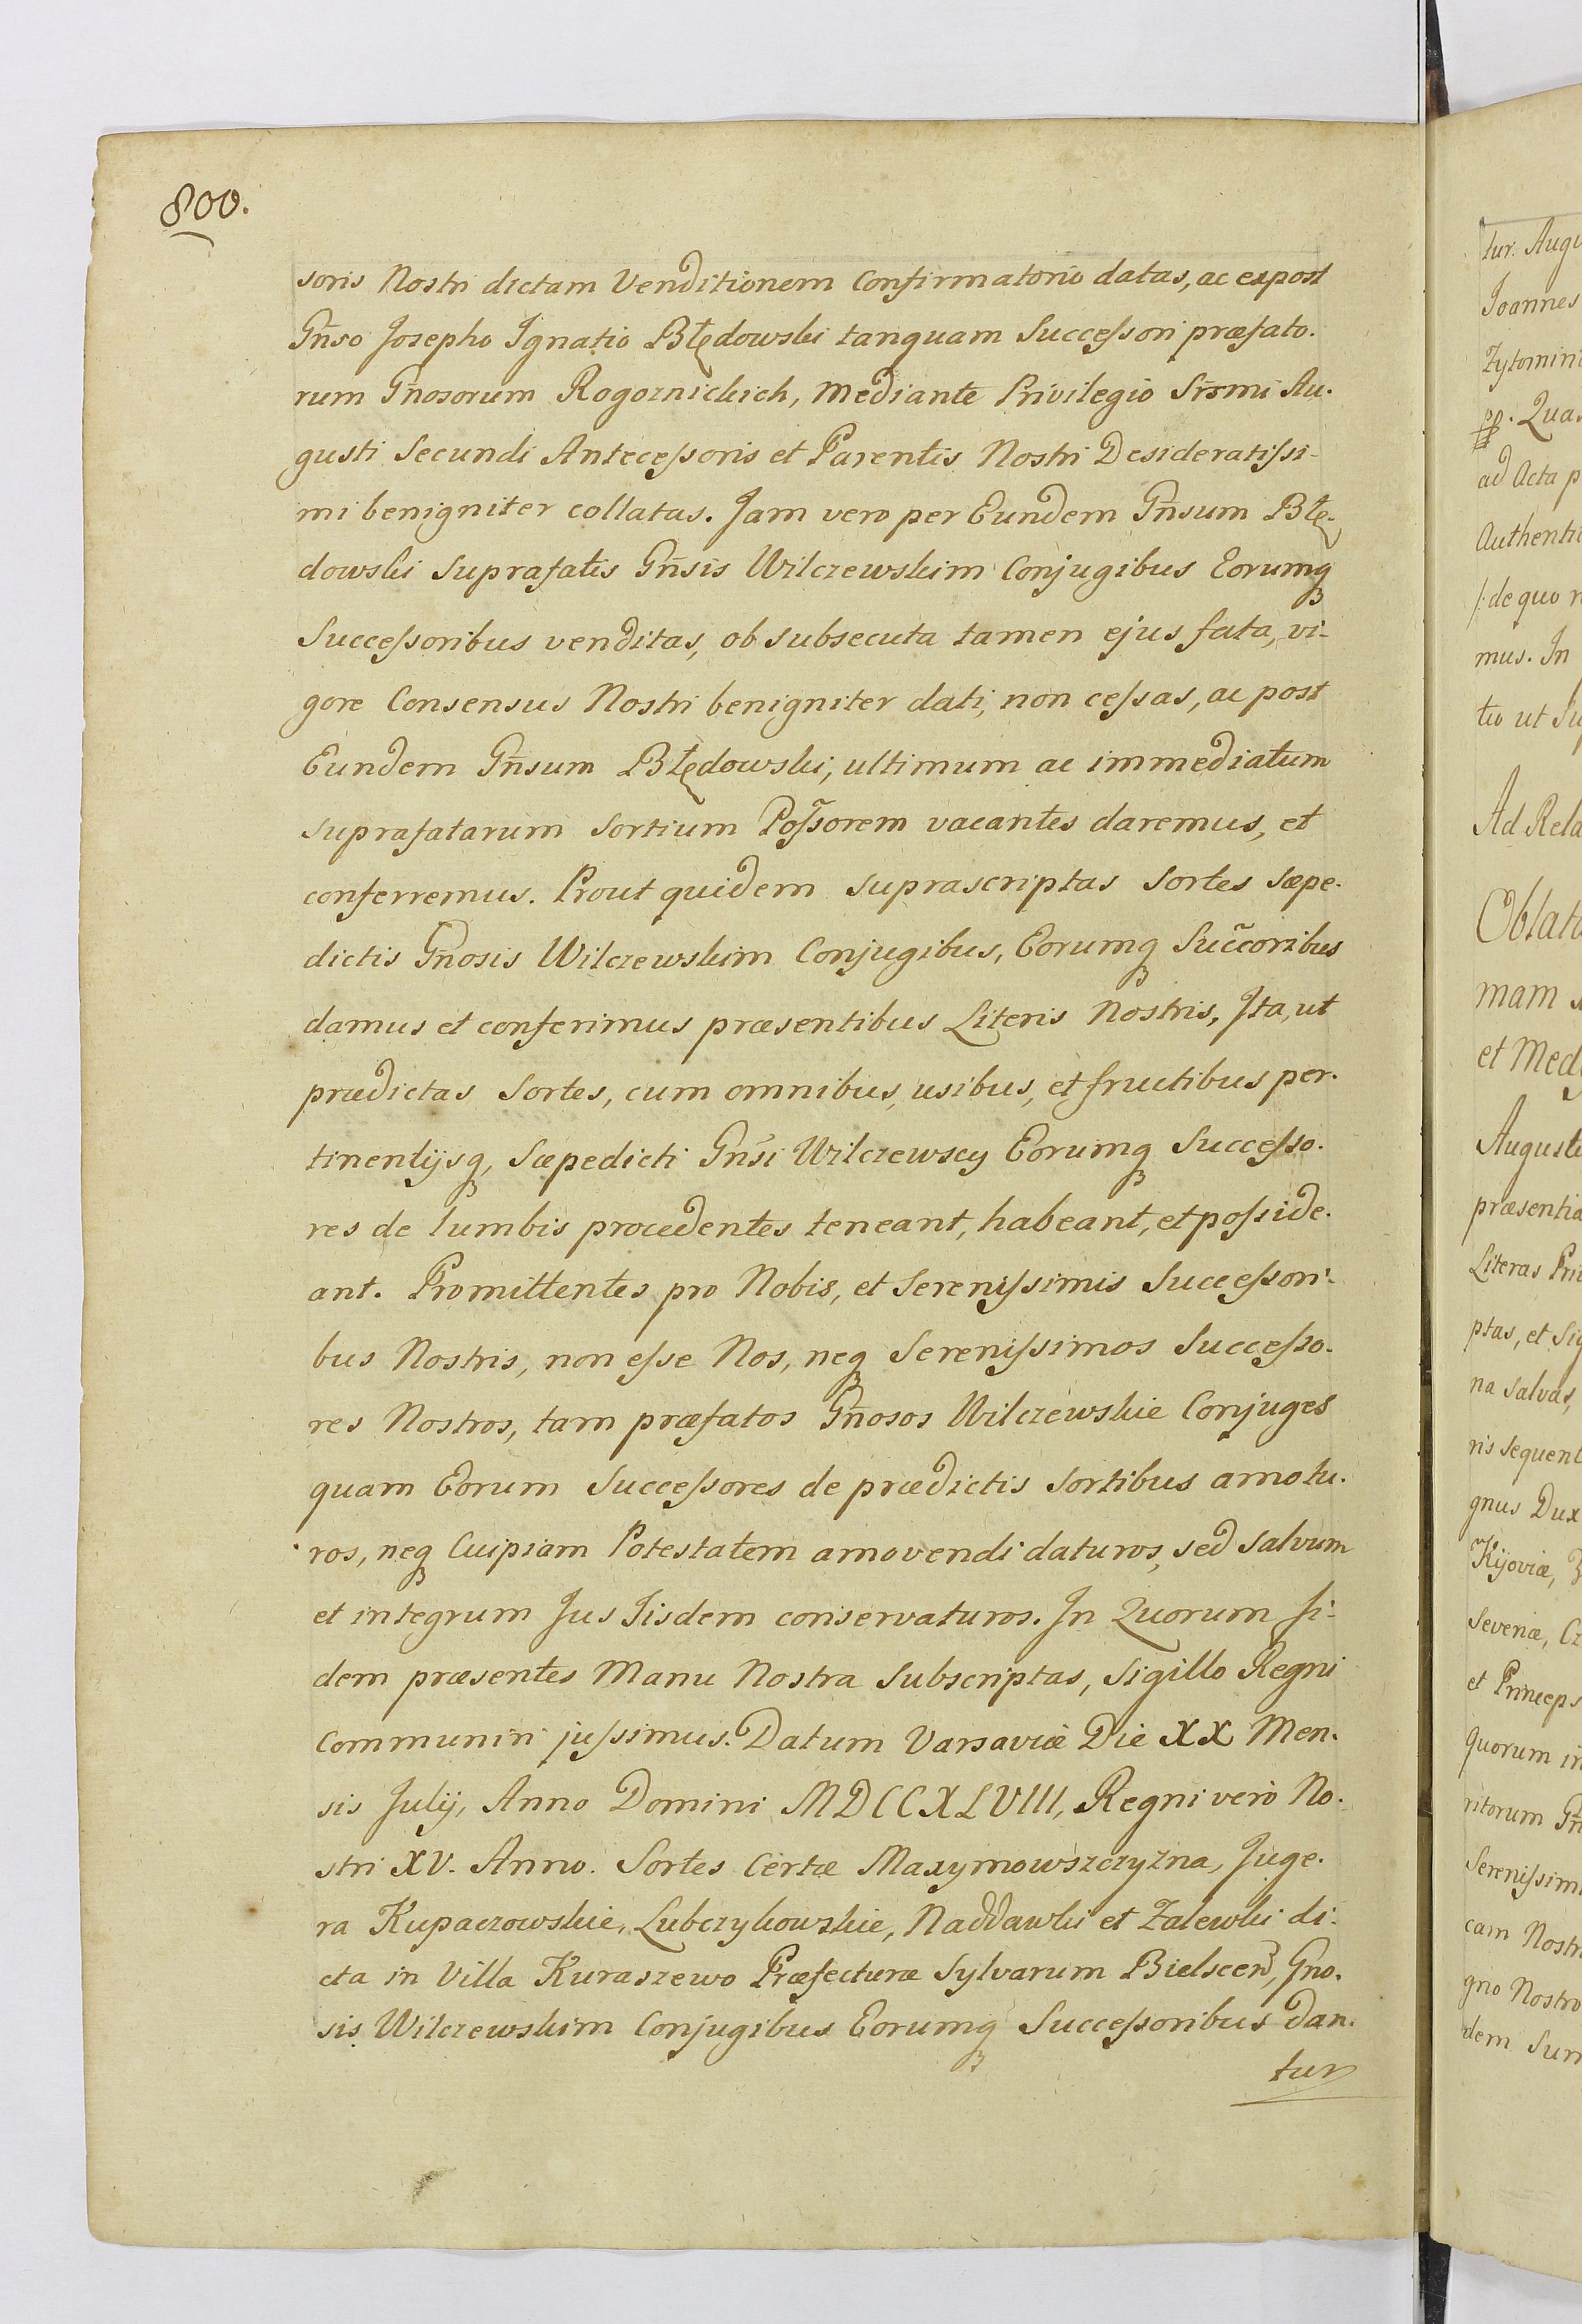 800.
soris Nostri dictam Venditionem Confirmatorio datas, ac expost
Gñso Josepho Ignatio Błędowski tanquam Successori præfato-
rum Gñosorum Rogoznickich, Mediante Privilegio Srsmi Au-
gusti Secundi Antecessoris et Parentis Nostri Desideratissi-
mi benigniter collatas. Jam vero per Eundem Gñsum Błę-
dowski Suprafatis Gñsis Wilczewskim Conjugibus Eorumq3
Successoribus venditas, ob subsecuta tamen ejus fata, vi-
gore Consensus Nostri benigniter dati, non cessas, ac post
Eundem Gñsum Błędowski, ultimum ac immediatum
suprafatarum Sortium Poss̃orem vacantes daremus, et
conferremus. Prout quidem suprascriptas Sortes sæpe-
dictis Gñosis Wilczewskim Conjugibus, Eorumq3 Succ̃oribus
damus et conferimus præsentibus Literis Nostris, Ita, ut
prædictas Sortes, cum omnibus, usibus, et fructibus per-
tinentijsq3, Sæpedicti Gñsi Wilczewscy Eorumq3 Successo-
res de lumbis procedentes teneant, habeant, et posside-
ant. Promittentes pro Nobis, et Serenissimis Successori-
bus Nostris, non esse Nos, neq3 Serenissimos Successo-
res Nostros, tam præfatos Gñosos Wilczewskie Conjuges
quam Eorum Successores de prædictis Sortibus amotu-
ros, neq3 Cuipiam Potestatem amovendi daturos, sed salvum
et integrum Jus Iisdem conservaturos. In Quorum fi-
dem præsentes Manu Nostra Subscriptas, Sigillo Regni
Communiri jussimus. Datum Varsaviæ Die XX Men-
sis Julij, Anno Domini MDCCXLVIII, Regni verò No-
stri XV. Anno. Sortes Certæ Maxymowszczyzna, Juge-
ra Kupaczowskie, Lubczykowskie, Naddawki et Zalewki di-
cta in Villa Kuraszewo Præfecturæ Sylvarum Bielscen, Gno-
sis Wilczewskim Conjugibus Eorumq3 Successoribus Dan-
tur
tur. Augu
Joannes
Zytomiri
pp. Quas
ad Acta p
Authenti
/: de quo r
mus. In
tio ut Su
Ad Rela
Oblata
mam
et Med
Augusti
præsentia
Literas Pri
ptas, et Sig
na salvas,
ris sequent
gnus Dux
Kijoviæ,
Severiæ, Cz
et Princeps
quorum in
ritorum Gñ
Serenissim
cam Nostr
gno Nostro
dem Sum